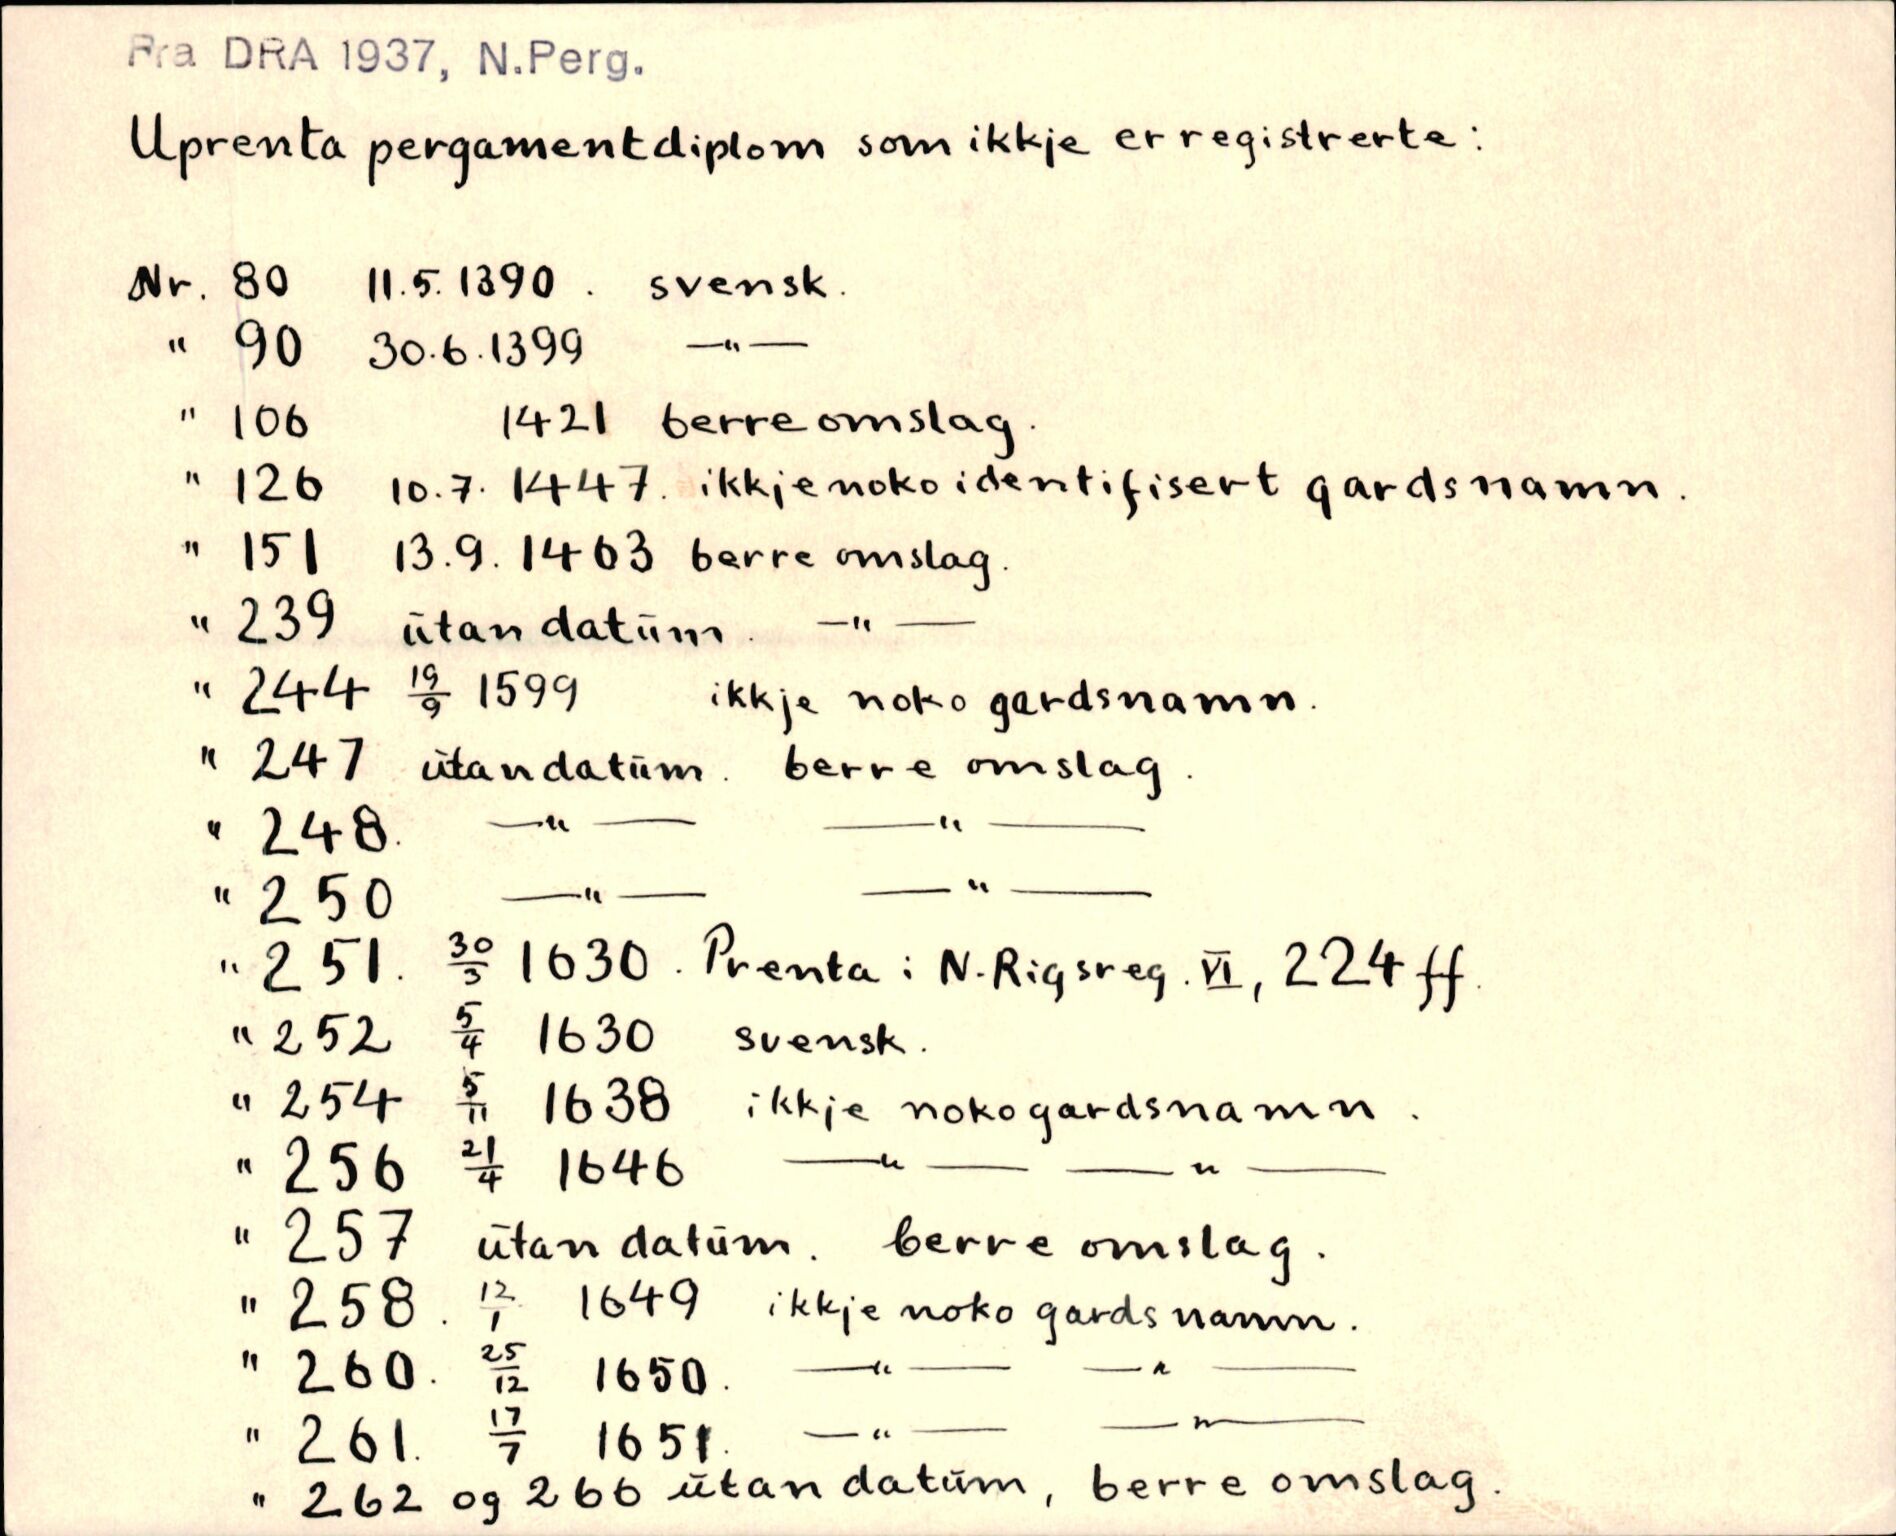 Fra DRA 1937, N.Perg.
Uprenta pergamentdiplom som ikkje er registrerte:
Nr. 80 11.5.1390. svensk.
" 90 30.6.1399 —"—
" 106 1421 berre omslag.
" 126 10.7.1447. ikkje noko identifisert gardsnamn.
" 151 13.9.1463 berre omslag.
" 239 ūtan datūm. —"—
" 244 19/9 1599 ikkje noko gardsnamn.
" 247 ūtan datūm. berre omslag.
" 248. —"— —"—
" 250 —"— —"—
" 251. 30/3 1630. Prenta i N.Rigsreg. VI, 224 ff.
" 252 5/4 1630 svensk.
" 254 5/11 1638 ikkje noko gardsnamn.
" 256 21/4 1646 —"— —"—
" 257 ūtan datūm. berre omslag.
" 258. 12/1 1649 ikkje noko gardsnamn.
" 260. 25/12 1650. —"— —"—
" 261. 17/7 1651. —"— —"—
" 262 og 266 ūtan datūm, berre omslag.